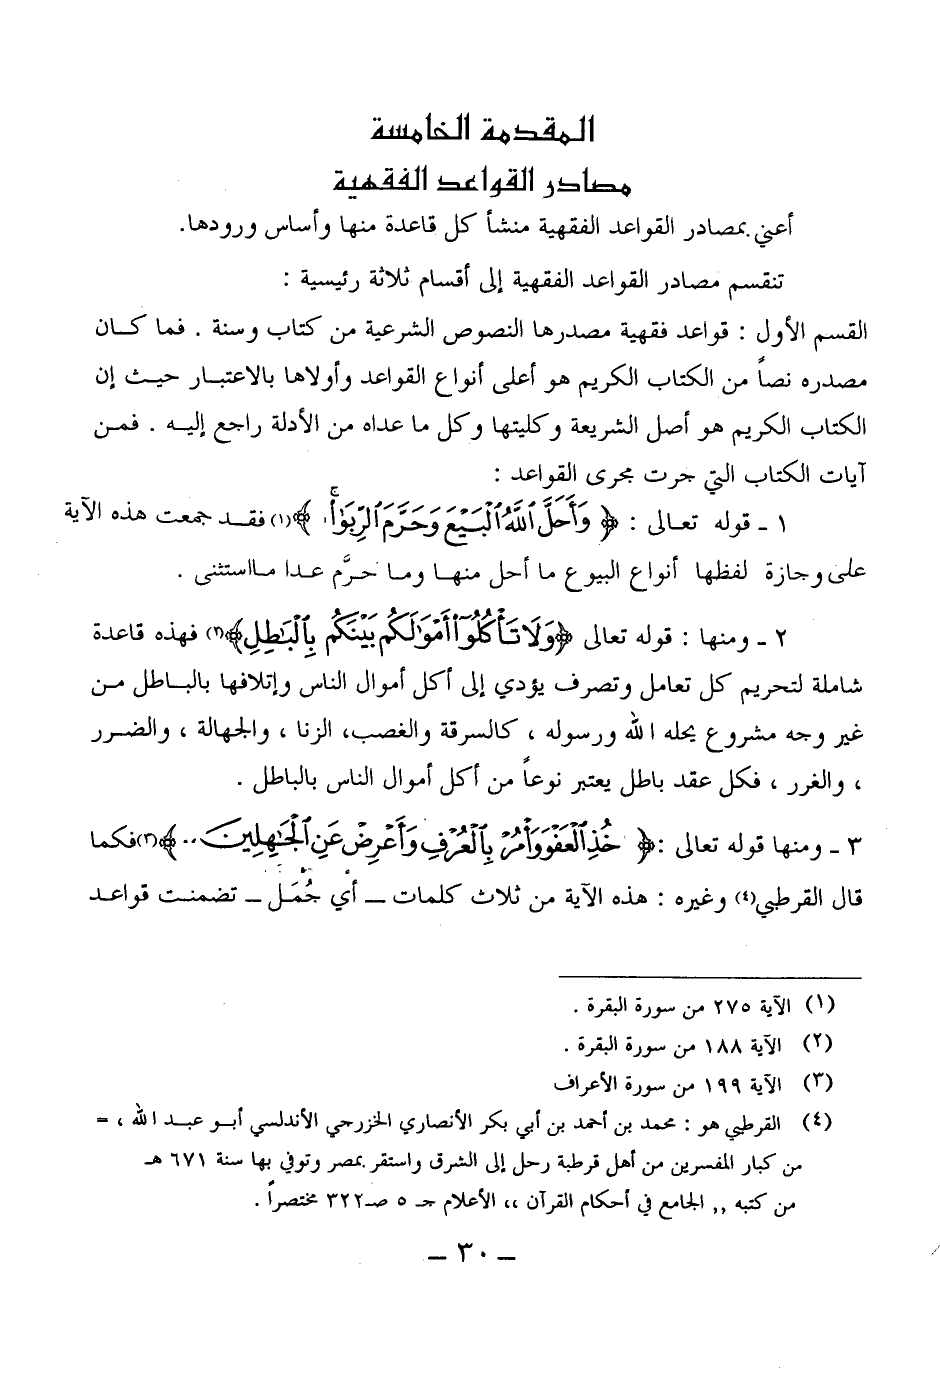 المقدمة الخامسة
مصادر القواعد الفقهية
أعني بمصادر القواعد الفقهية منشأ كل قاعدة منها وأساس ورودها.
تنقسم مصادر القواعد الفقهية إلى أقسام ثلاثة رئيسية :
القسم الأول : قواعد فقهية مصدرها النصوص الشرعية من كتاب وسنة . فما كان
مصدره نصاً من الكتاب الكريم هو أعلى أنواع القواعد وأولاها بالاعتبار حيث إن
الكتاب الكريم هو أصل الشريعة وكليتها وكل ما عداه من الأدلة راجع إليه . فمن
آيات الكتاب التي جرت مجرى القواعد :
١ ـ قوله تعالى : ﴿ وَأَحَلَّ ٱللَّهُ ٱلْبَيْعَ وَحَرَّمَ ٱلرِّبَوٰاْۚ ﴾(١) فقد جمعت هذه الآية
على وجازة لفظها أنواع البيوع ما أحل منها وما حرَّم عدا مااستثنى .
٢ ـ ومنها : قوله تعالى ﴿وَلَا تَأْكُلُوٓاْ أَمْوَٰلَكُم بَيْنَكُم بِٱلْبَٰطِلِ﴾(٢) فهذه قاعدة
شاملة لتحريم كل تعامل وتصرف يؤدي إلى أكل أموال الناس وإتلافها بالباطل من
غير وجه مشروع يحله الله ورسوله ، كالسرقة والغصب، الزنا ، والجهالة ، والضرر
، والغرر ، فكل عقد باطل يعتبر نوعاً من أكل أموال الناس بالباطل .
٣ ـ ومنها قوله تعالى :﴿ خُذِ ٱلْعَفْوَ وَأْمُرْ بِٱلْعُرْفِ وَأَعْرِضْ عَنِ ٱلْجَٰهِلِينَ ..﴾(٣)فكما
قال القرطبي(٤) وغيره : هذه الآية من ثلاث كلمات ــ أي جُمَل ــ تضمنت قواعد
(١) الآية ٢٧٥ من سورة البقرة .
(٢) الآية ١٨٨ من سورة البقرة .
(٣) الآية ١٩٩ من سورة الأعراف
(٤) القرطبي هو : محمد بن أحمد بن أبي بكر الأنصاري الخزرجي الأندلسي أبو عبد الله ، =
من كبار المفسرين من أهل قرطبة رحل إلى الشرق واستقر بمصر وتوفي بها سنة ٦٧١ هـ
من كتبه ,, الجامع في أحكام القرآن ،، الأعلام جـ ٥ صـ٣٢٢ مختصراً .
ــ ٣٠ ــ